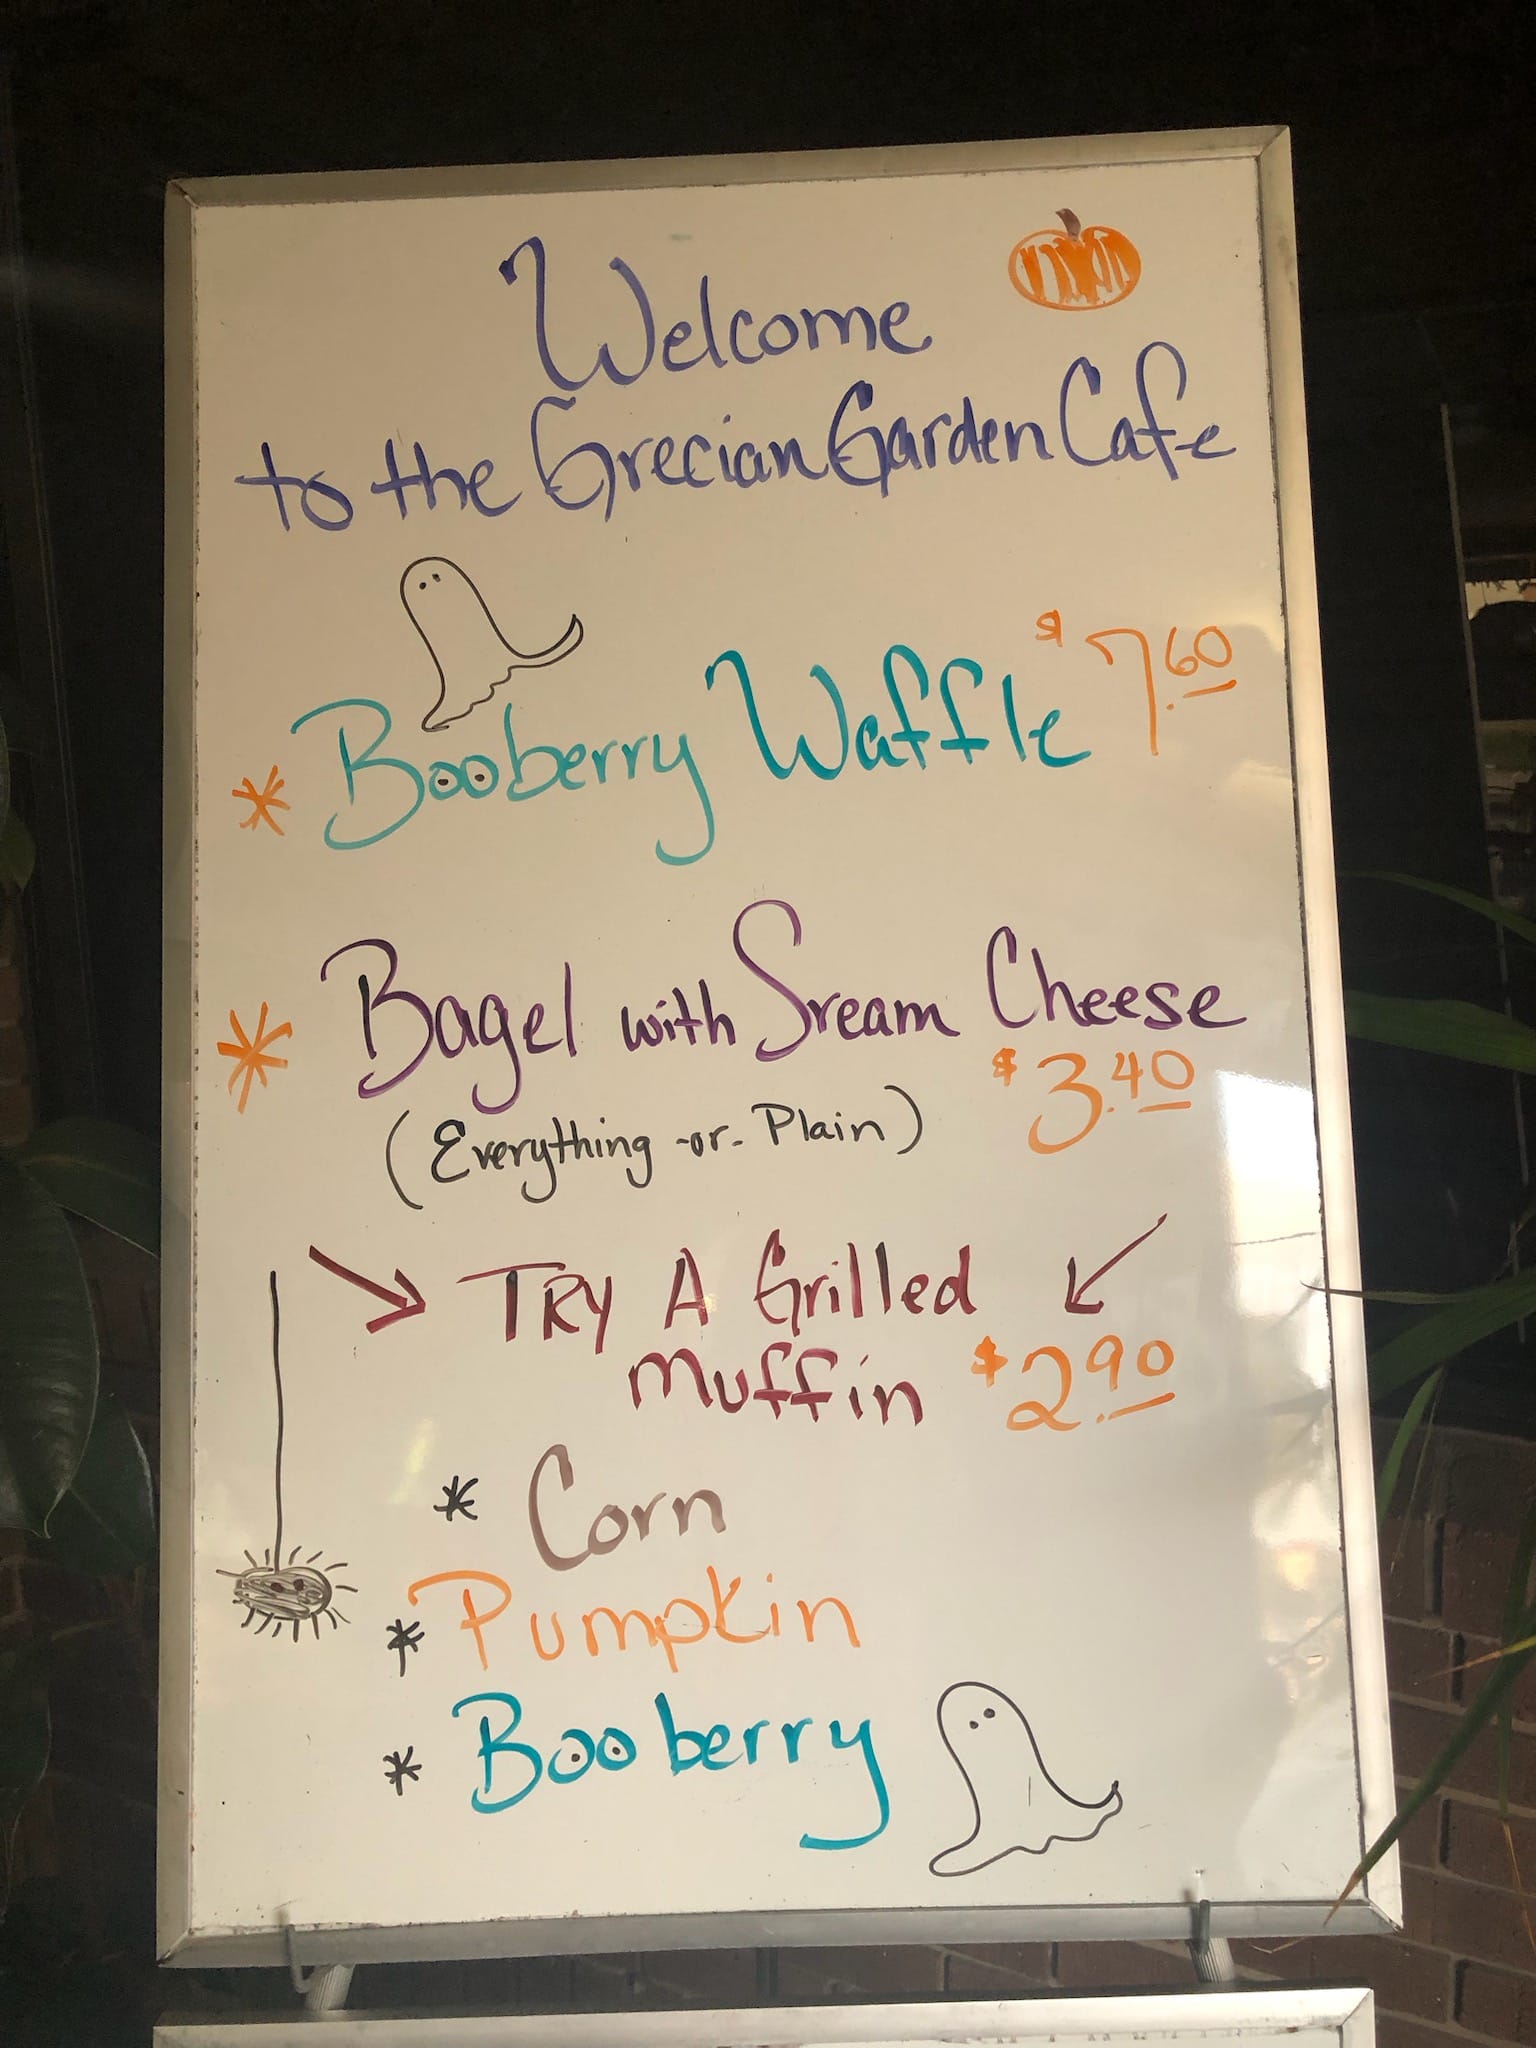 Welcome
to the Grecian Garden Cafe
* Booberry Waffle $7.60
* Bagel with Sream Cheese
(Everything -or- Plain) $3.40
TRY A Grilled
Muffin $2.90
* Corn
* Pumpkin
* Booberry